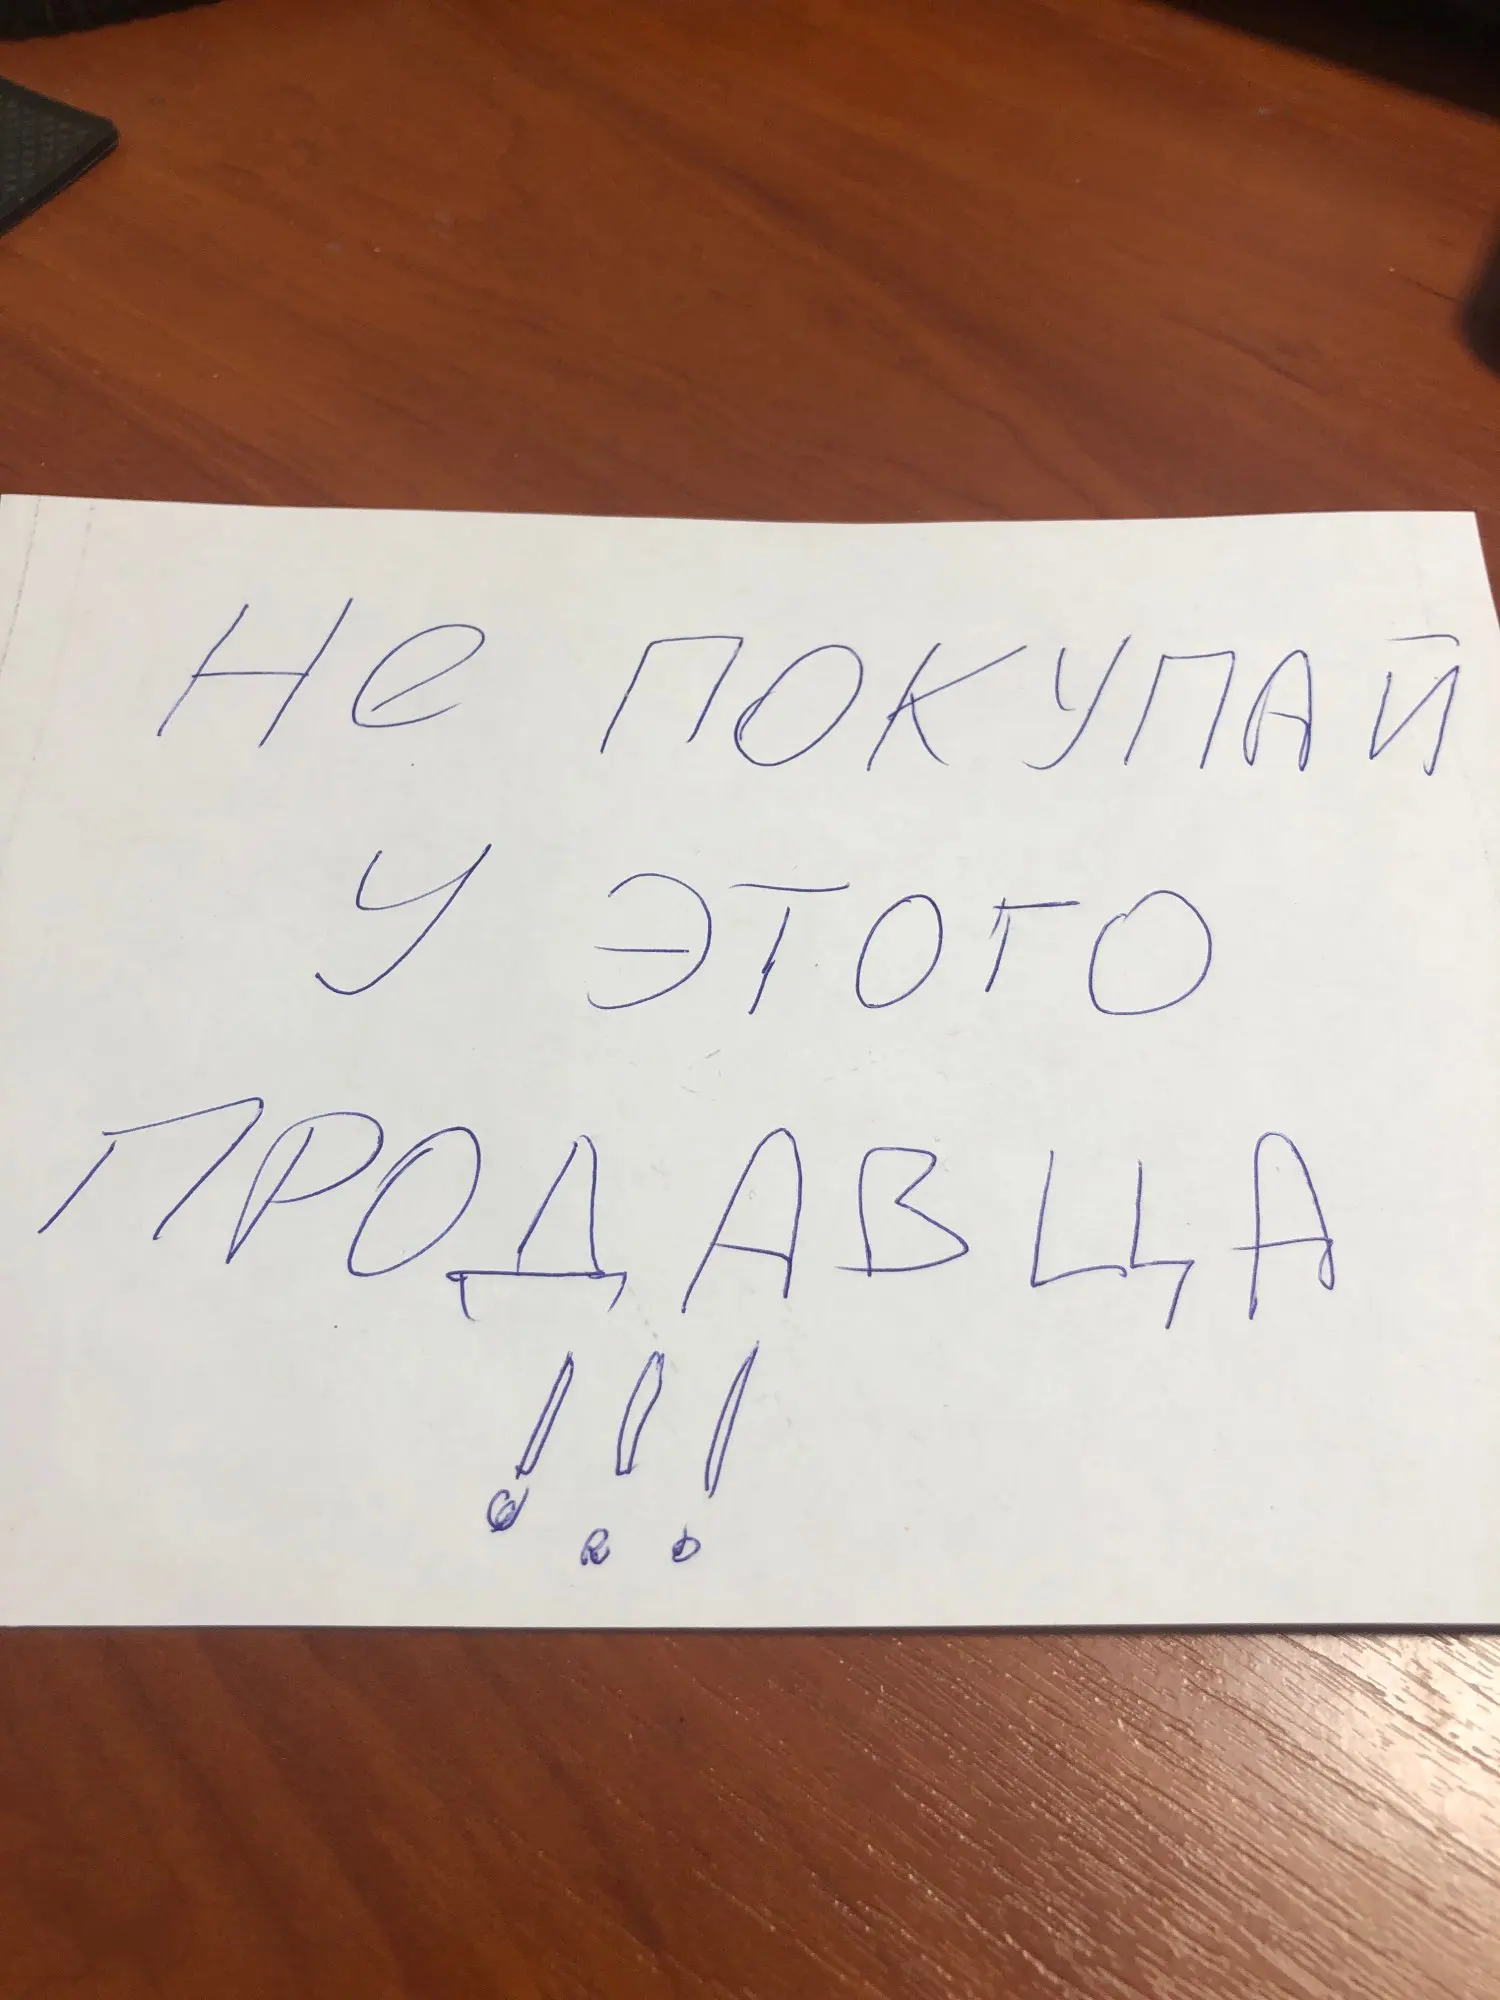 Не ПОКУПАЙ
У ЭТОГО
ПРОДАВЦА
!!!